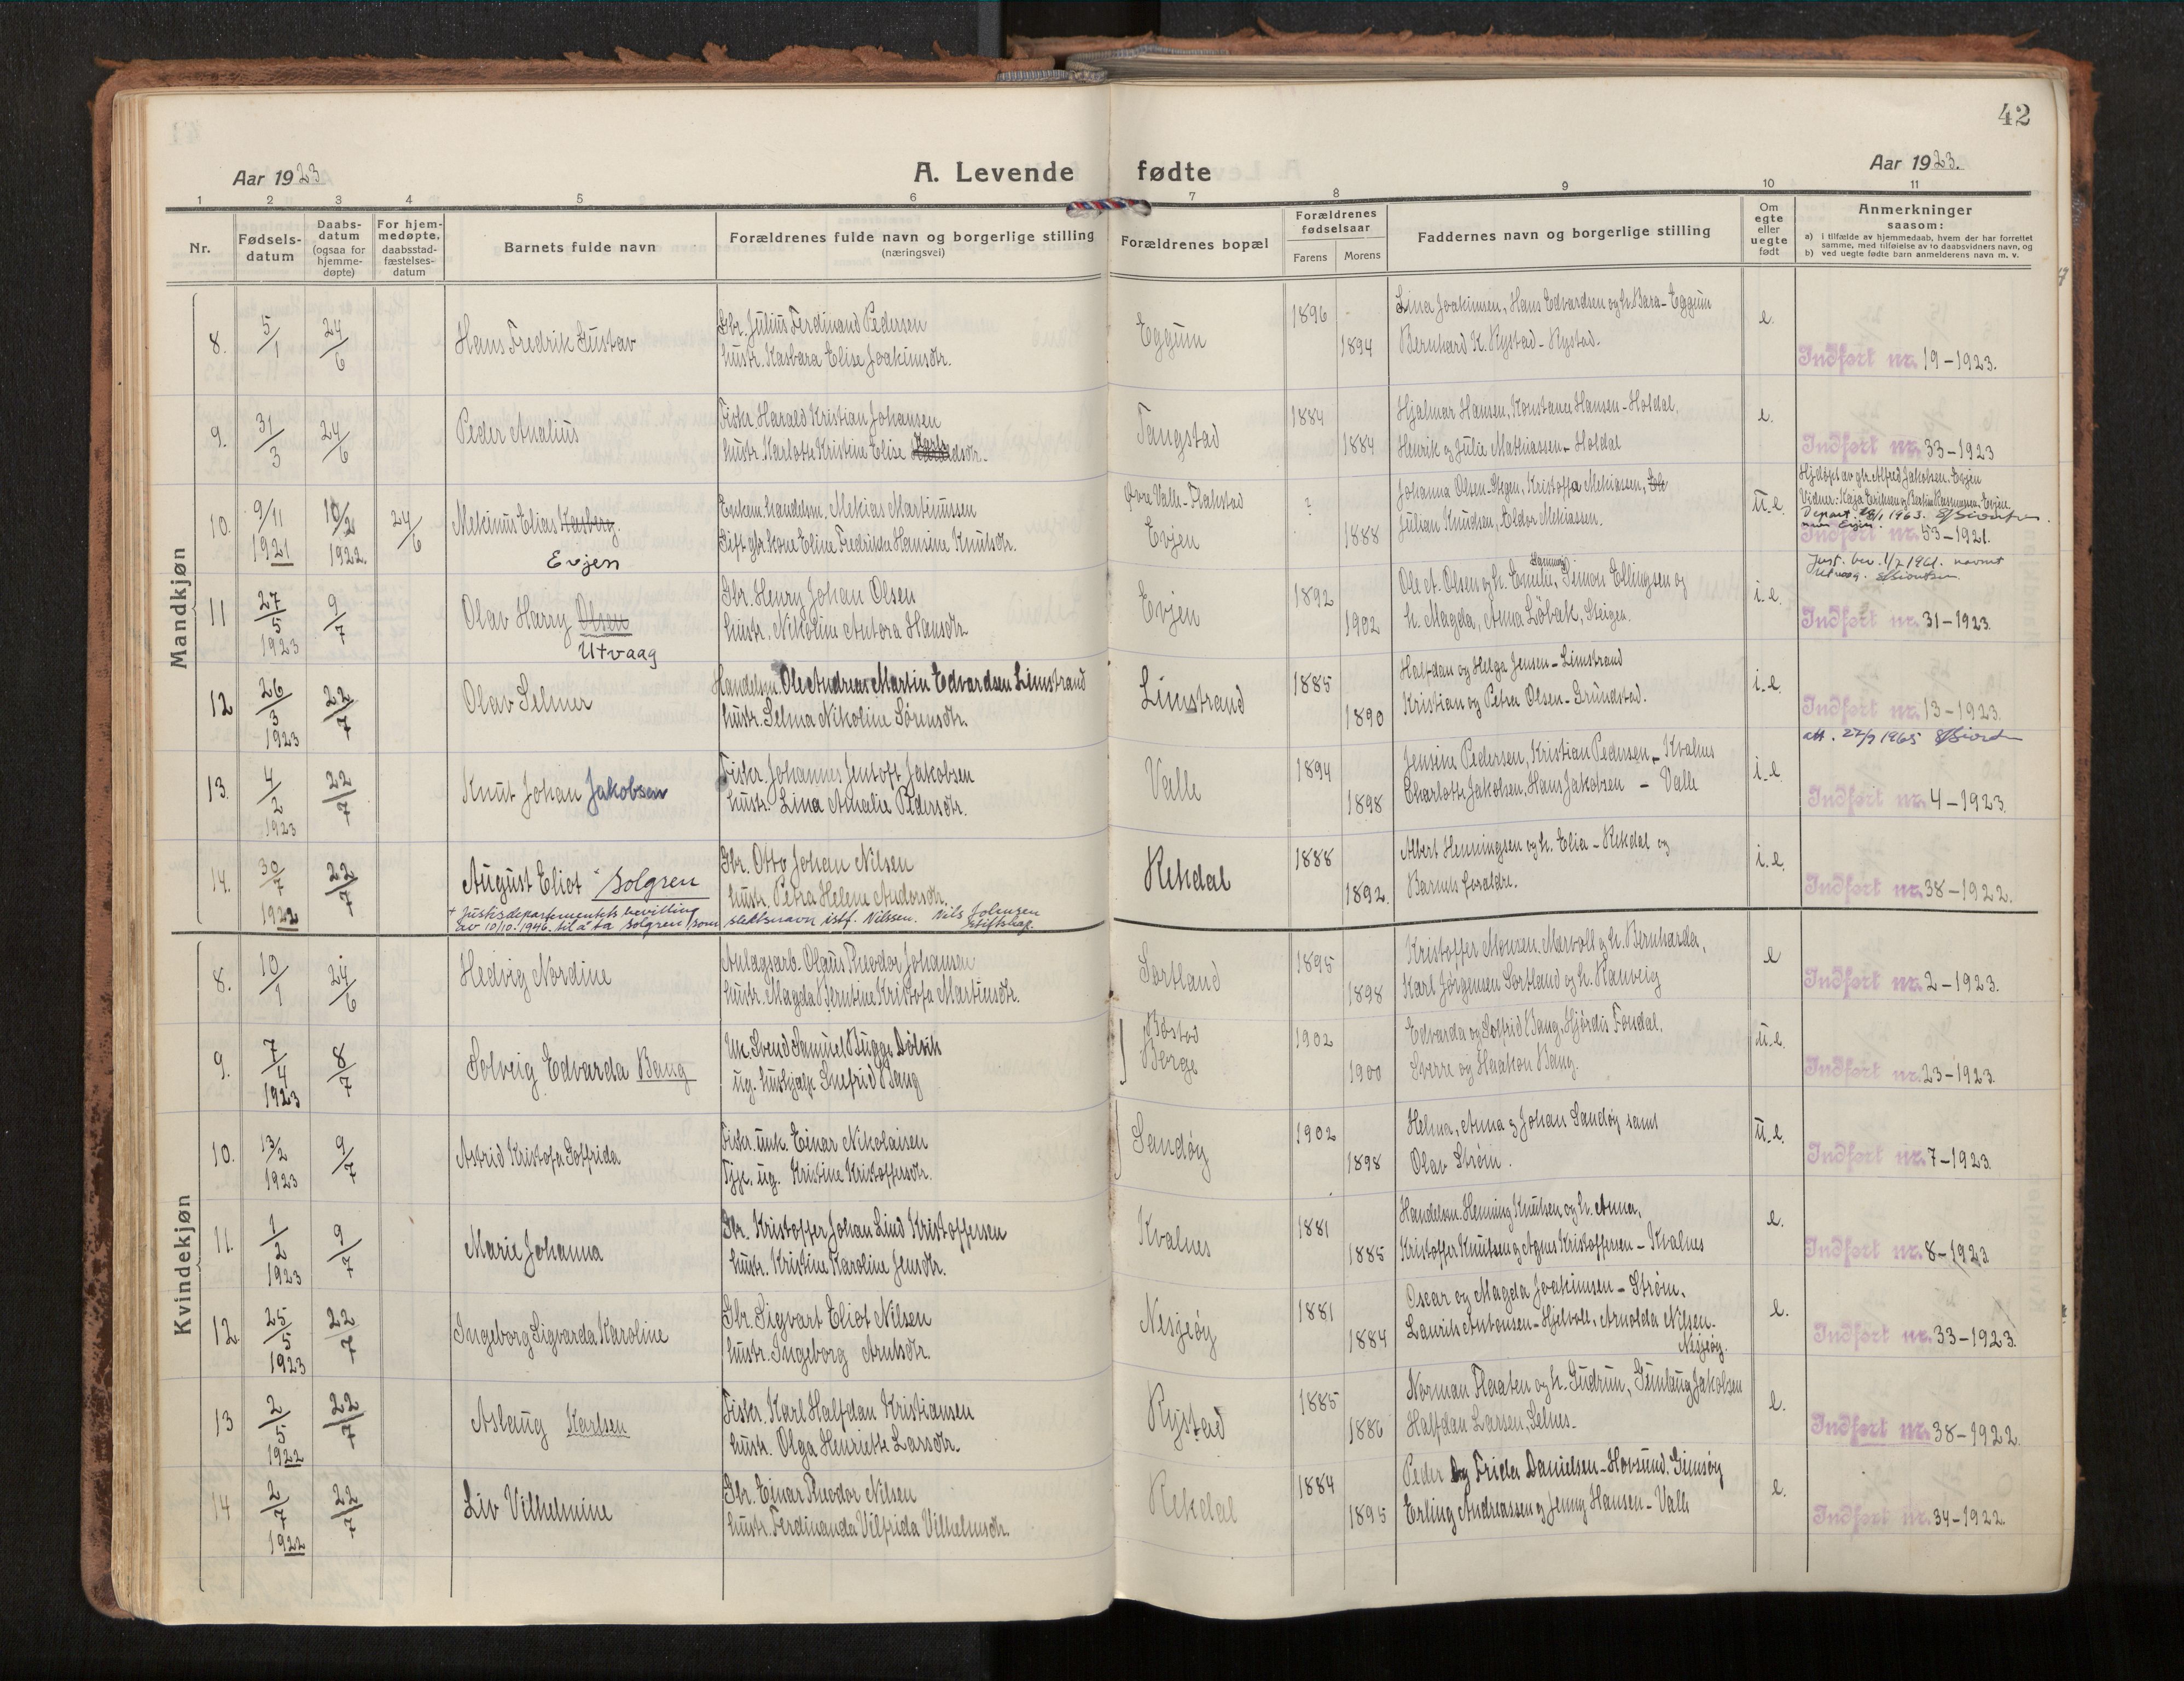 42
Aar 1923
A. Levende fødte
Aar 1923.
1 2 3 4 5 6 7 8 9 10 11
Nr.
Fødsels-
datum
Daabs-
datum
(ogsaa for
hjemme-
døpte)
For hjem-
medøpte,
daabsstad-
fæstelses-
datum
Barnets fulde navn
Forældrenes fulde navn og borgerlige stilling
(næringsvei)
Forældrenes bopæl
Forældrenes
fødselsaar
Farens Morens
Faddernes navn og borgerlige stilling
Om
egte
eller
uegte
født
Anmerkninger
saasom:
a) i tilfælde av hjemmedaab, hvem der har forrettet
samme, med tilføielse av to daabsvidners navn, og
b) ved uegte fødte barn anmelderens navn m. v.
Mandkjøn
8. 5/1 24/6 Hans Fredrik Gustav
Gbr. Julius Ferdinand Pedersen
hustr. Kasbara Elise Joakimsdtr.
Eggum 1896 1894
Lina Joakimsen, Hans Edvardsen og h. Bara - Eggum
Bernhard K. Rystad - Rystad.
e.
Indført nr. 19-1923.
9. 31/3 24/6 Peder Analius
Fiskr. Harald Kristian Johansen
hustr. Karlotte Kristine Elise Karlsdtr.
Tangstad 1884 1884
Hjalmar Hansen, Konstance Hansen - Holdal,
Henrik og Julie Mathiassen - Holdal
e.
Indført nr. 33-1923
10. 9/11 1921 10/2 1922. 24/6 Mekinus Elias Kasberg.
Evjen
Enkem. handelsm. Mekias Martinussen
Gift gbr. kone Eline Fredrikke Hansine Knutsdtr.
Øvre Valle - Flakstad
Evjen ? 1888
Johanna Olsen - Stegen, Kristoffa Mekiassen,
Julian Knudsen, Eldor Mekiassen.
u.e.
Hjdøpt av gbr. Alfred Jakobsen. Evjen
Vidner: Kaja Erichsen og Bertin Rasmussen. Evjen.
Depart. 28/1 1963.
navn Evjen.
Indført nr. 53-1921.
11 27/5 1923 9/7 Olav Harry Olsen
Utvaag
Gbr. Henry Johan Olsen
hustr. Nikoline Antora Hansdtr.
Evjen 1892 1902
Ole A. Olsen og h. Emilie, Simon Ellingsen og
h. Magda, Anna Löbak, Steigen.
i.e.
Just. bev. 1/2 1961. navnet
Utvaag.
Indført nr. 31-1923.
12 26/3 1923 22/7 Olav Selmer
Handelsm. Ole Andreas Martin Edvardsen Limstrand
hustr. Selma Nikoline Sörensdtr.
Limstrand 1885 1890
Halfdan og Helga Jensen - Limstrand
Kristian og Petra Olsen - Grundstad.
i.e.
Indført nr. 13-1923.
att. 27/9 1965
13. 4/2 1923 22/7 Knut Johan Jakobsen
Fiskr. Johannes Jentoft Jakobsen
hustr. Lina Amalie Pedersdtr.
Valle 1894 1898
Jensine Pedersen, Kristian Pedersen - Kvalnes
Charlotte Jakobsen, Hans Jakobsen - Valle
i.e.
Indført nr. 4-1923.
14. 30/7 1922 22/7 August Eliot + Solgren
Gbr. Otto Johan Nilsen
hustr. Petra Helene Andersdtr.
+ Justisdepartementets bevilling
av 10/10. 1946. til å ta Solgren som slektsnavn istf. Nilsen. Nils Johnsen
Stiftskap.
Rekdal 1888 1892.
Albert Henningsen og h. Elia - Rekdal og
Barnets foreldre.
i.e.
Indført nr. 38-1922.
Kvindekjøn
8. 10/1 24/6 Hedvig Nordine
Anlagsarb. Olaus Theodor Johansen
hustr. Magda Berntine Kristofa Martinsdtr.
Sortland 1895 1898
Kristoffer Monsen. Mervoll og h. Bernharda,
Karl Jørgensen Sortland og h. Hanveig
e
Indført nr. 2-1923.
9. 7/4 1923 8/7 Solveig Edvarda Bang
Uk. Svend Samuel Bugge Dölvik
ug. hushjælp Snefrid Bang
Bøstad
Borge 1902 1900
Edvarda og Solfrid Bang, Hjördis Fondal,
Sverre og Haakon Bang.
u.e.
Indført nr. 23-1923.
10. 13/2 1923 9/7 Astrid Kristofa Goffrida
Fiskr. unk. Einar Nikolaisen
Tjje. ug. Kristine Kristoffersdtr.
Sandøy 1902 1898
Helna, Anna og Johan Sandøy samt
Olav Strøm.
u.e.
Indført nr. 7-1923.
11. 1/2 1923 9/7 Marie Johanna
Gbr. Kristoffer Johan Lind Kristoffersen
hustr. Kristine Karoline Jensdtr.
Kvalnes 1881 1885
Handelsm. Henning Knutsen og h. Anna,
Kristoffer Knutsen og Agnes Kristoffersen - Kvalnes
e.
Indført nr. 8-1923
12. 25/5 1923 22/7 Ingeborg Sigvarda Karoline
Gbr. Sigvart Eliot Nilsen
hustr. Ingeborg Arntsdtr.
Nesjeøy 1881 1884
Oscar og Magda Joakimsen - Strøm.
Laurits Antonsen - Hjelvoll, Arnolda Nilsen.
Nesjeøy.
e.
Indført nr. 33-1923.
13 2/5 1922 22/7 Aslaug Karlsen
Fiskr. Karl Halfdan Kristiansen
hustr. Olga Henriette Larsdtr.
Rystad 1885 1886
Norman Flaaten og h. Gudrun, Gunlaug Jakobsen
Halfdan Larsen, Selnes.
e.
Indført nr. 38-1922.
14 2/7 1922 22/7 Liv Vilhelmine
Gbr. Einar Theodor Nilsen
hustr. Ferdinanda Vilfrida Vilhelmsdtr.
Rekdal 1884 1895
Peder og Frida Danielsen - Hovsund. Gimsøy
Erling Andreassen og Jenny Hansen - Valle
e.
Indført nr. 34-1922.